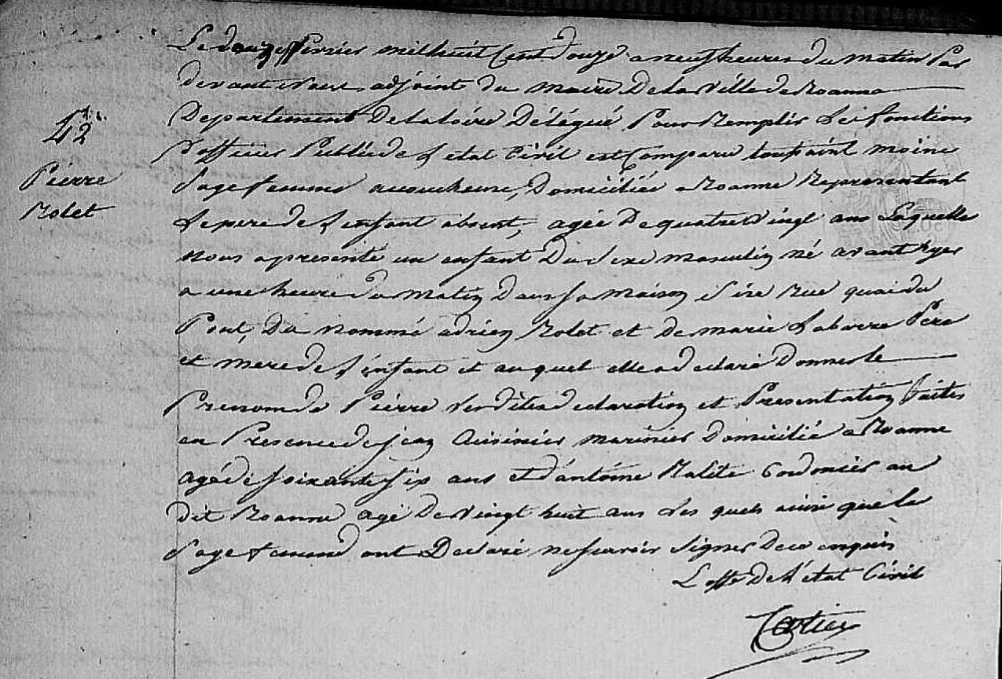 Le douze fevrier mil huit Cent douze a neuf heures du matin Par
devant nous adjoint du maire De la Ville de Roanne
42
Departement De la Loire Délégué Pour Remplir Les fonctions
D'officier Publique de L'etat Civil est Comparu toussaint moine
Pierre
Sage femme acoucheuse, Domiciliée a Roanne Representant
Rolet
Le pere de L'enfant absent, agée De quatre Vingt ans Laquelle
nous a presenté un enfant Du Sexe masculin né avant hyer
a une heure du matin Dans Sa maison Size Rue quai du
Pont, du nommé adrien Rolet et de marie Labarre Pere
et mere de L'enfant et au quel elle a declaré Donner le
Prenom de Pierre Les dites declaration et Presentation faites
en Presence de jean Cuisinier marinier Domicilié a Roanne
agé de Soixante Six ans et d'antoine Malite Cordonier au
dit Roanne agé De Vingt huit ans Les quels ainsi que la
Sage femme ont Declaré ne Scavoir Signer De ce enquis
L'offr De L'état Civil